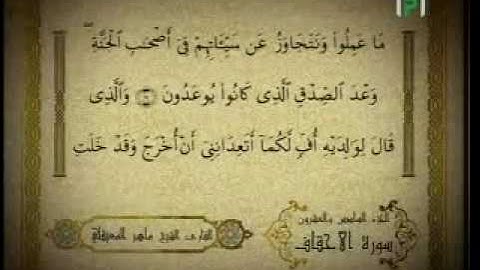 مَا عَمِلُوا۟ وَنَتَجَاوَزُ عَن سَيِّـَٔاتِهِمْ فِىٓ أَصْحَـٰبِ ٱلْجَنَّةِ ۖ
وَعْدَ ٱلصِّدْقِ ٱلَّذِى كَانُوا۟ يُوعَدُونَ ١٦ وَٱلَّذِى
قَالَ لِوَٰلِدَيْهِ أُفٍّ لَّكُمَآ أَتَعِدَانِنِىٓ أَنْ أُخْرَجَ وَقَدْ خَلَتِ
الجزء السادس والعشرون
سورة الأحقاف
القارئ الشيخ ماهر المعيقلي